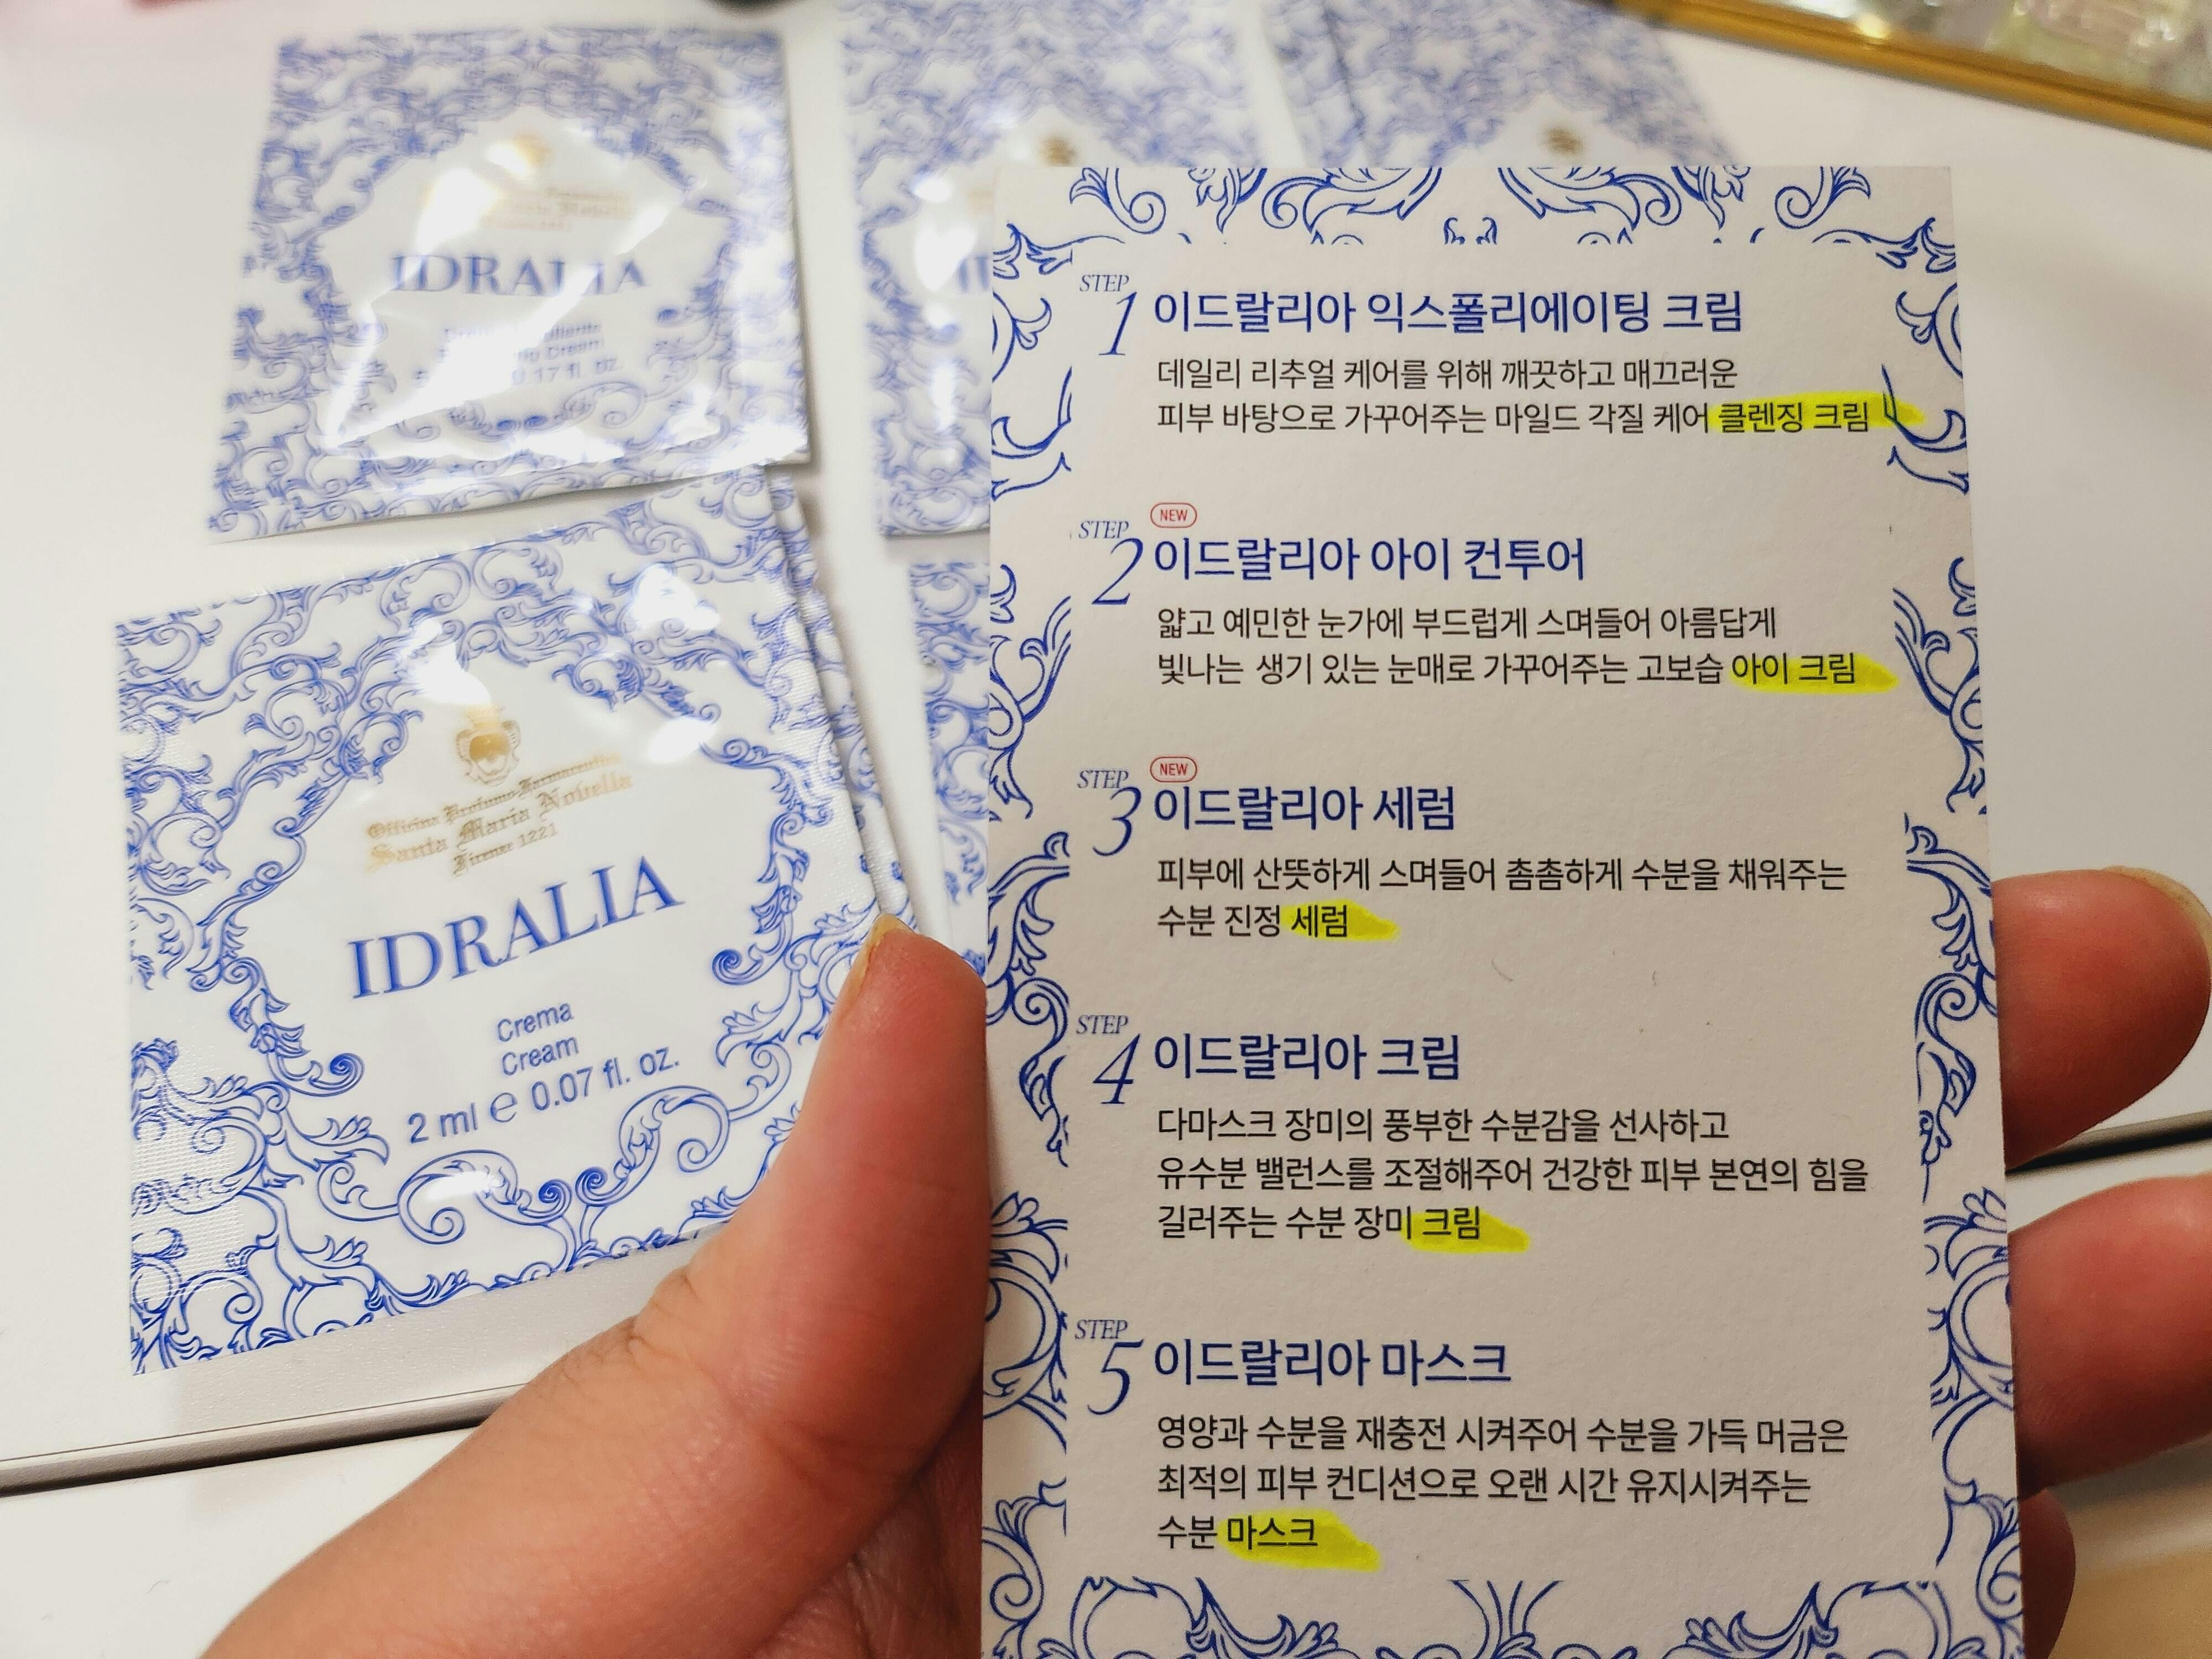 IDRALIA
0.17 fl. oz.
Officina Profumo-Farmaceutica
Santa Maria Novella
Firenze 1221
IDRALIA
Crema
Cream
2 ml e 0.07 fl. oz.
STEP 1 이드랄리아 익스폴리에이팅 크림
데일리 리추얼 케어를 위해 깨끗하고 매끄러운
피부 바탕으로 가꾸어주는 마일드 각질 케어 클렌징 크림
NEW
STEP 2 이드랄리아 아이 컨투어
얇고 예민한 눈가에 부드럽게 스며들어 아름답게
빛나는 생기 있는 눈매로 가꾸어주는 고보습 아이 크림
NEW
STEP 3 이드랄리아 세럼
피부에 산뜻하게 스며들어 촘촘하게 수분을 채워주는
수분 진정 세럼
STEP 4 이드랄리아 크림
다마스크 장미의 풍부한 수분감을 선사하고
유수분 밸런스를 조절해주어 건강한 피부 본연의 힘을
길러주는 수분 장미 크림
STEP 5 이드랄리아 마스크
영양과 수분을 재충전 시켜주어 수분을 가득 머금은
최적의 피부 컨디션으로 오랜 시간 유지시켜주는
수분 마스크